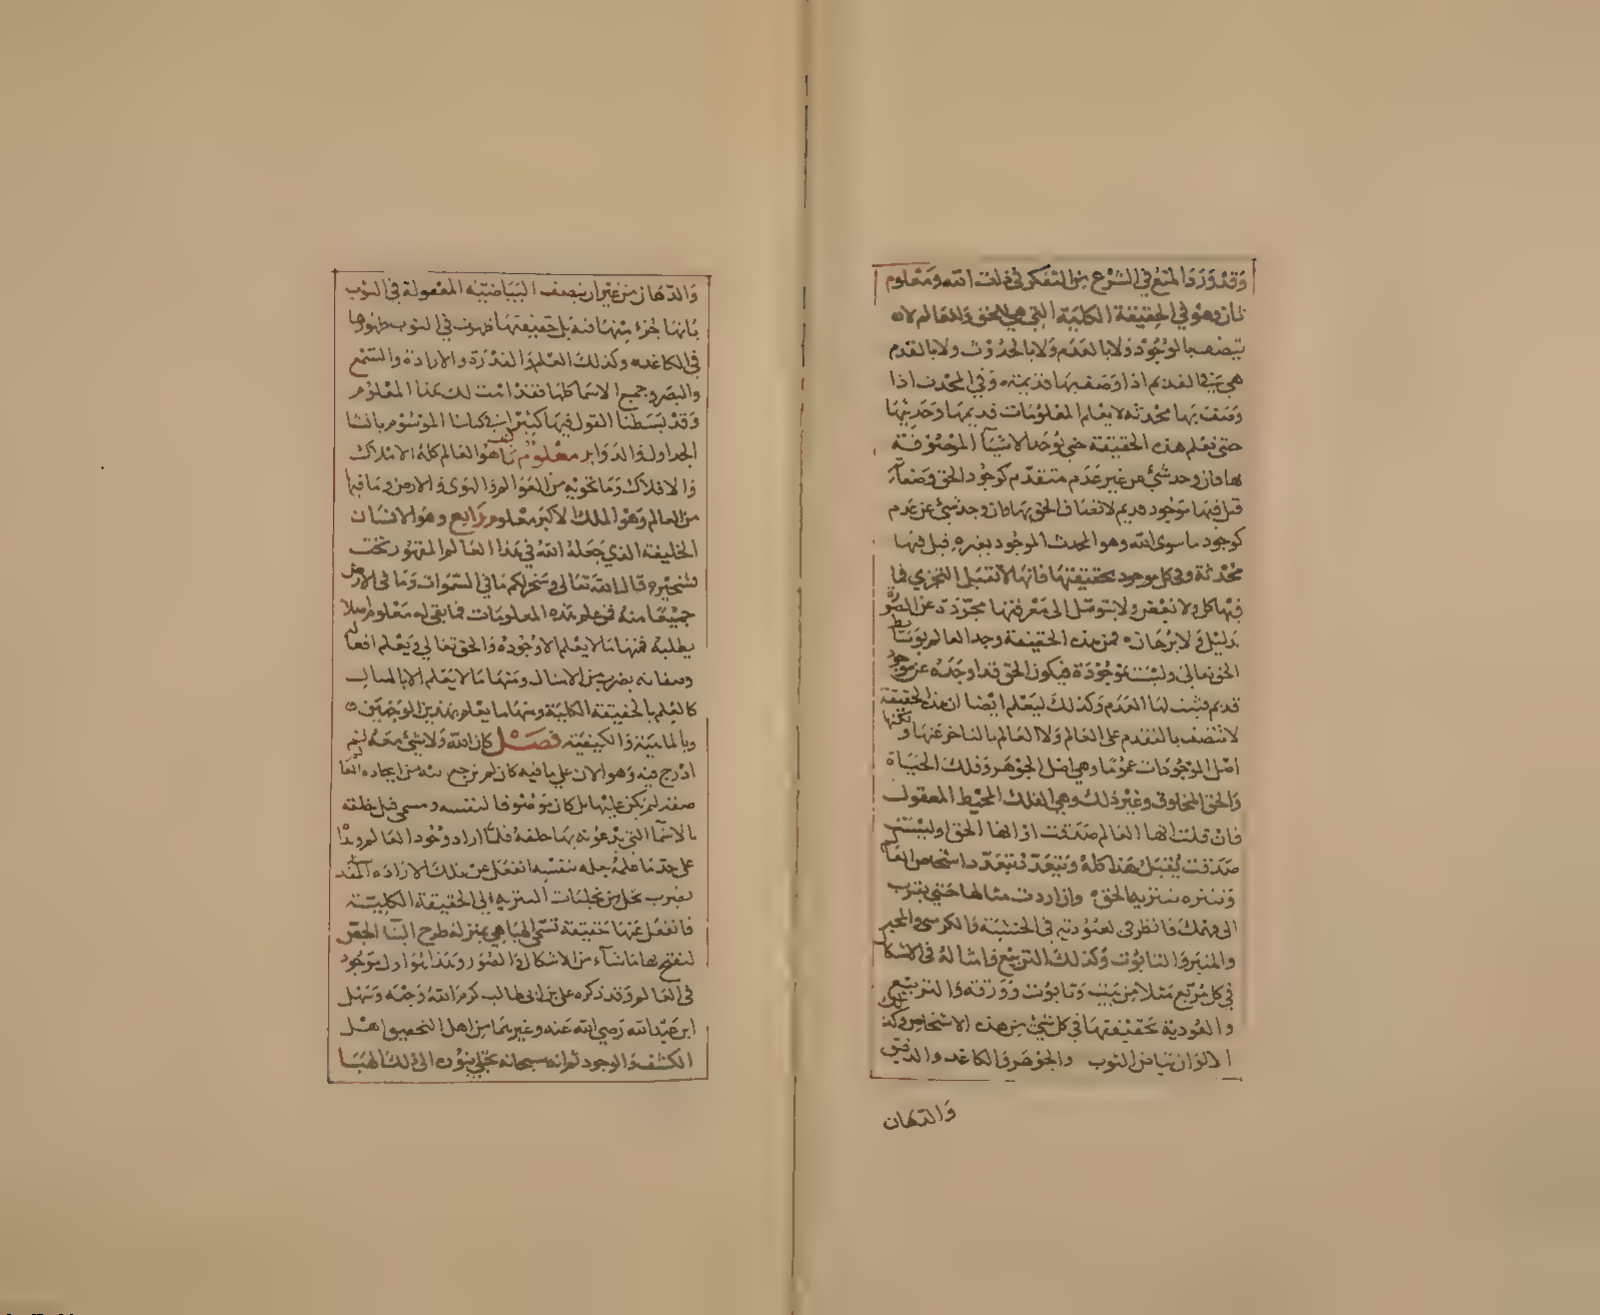 وقد ورد المنع في الشرع من التفكر في ذات الله ومعلوم
ثان وهو في الحقيقة الكلية التي هي للحق وللعالم لا
تتصف بالوجود ولا بالعدم ولا بالحدوث ولا بالقدم
هي في القديم اذا وصف بها قديمة وفي المحدث اذا
وصف بها محدثة لا يعلم المعلومات قديمها وحديثها
حتى تعلم هذه الحقيقة حتى توجد الاشيا الموصوفة
بها فان وجد شيء من غير عدم متقدم كوجود الحق وصفاته
قيل فيها موجود قديم لاتصاف الحق بها وان وجد شيء عن عدم
كوجود ما سوى الله وهو المحدث الموجود بغيره قيل فيها
محدثة وهي في كل موجود بحقيقتها فانها لا تقبل التجزي فما
فيها كل ولا بعض ولا يتوصل الى معرفتها مجردة عن الصورة
بدليل ولا برهان فمن هذه الحقيقة وجد العالم بوساطة
الحق تعالى وليست بموجودة فيكون الحق قد اوجدنا عن موجود
قديم فيثبت لنا القدم وكذلك ليعلم ايضا ان هذه الحقيقة
لا تتصف بالتقدم على العالم ولا العالم بالتاخر عنها ولكنها
اصل الموجودات عموما وهي اصل الجوهر وفلك الحياة
والحق المخلوق وغير ذلك وهي الفلك المحيط المعقول
فان قلت انها العالم صدقت او انها الحق او ليست
صدقت تقبل هذا كله وتتعدد بتعدد اشخاص العالم
وتتنزه بتنزيه الحق وان اردت مثالها حتى يقرب
الى فهمك فانظر في العودية في الخشبة والكرسي والمحبرة
والمنبر والتابوت وكذلك التربيع وامثاله في الاشكال
في كل مربع مثلا من بيت وتابوت وورقة والتربيع
والعودية بحقيقتها في كل شيء من هذه الاشخاص وكذلك
الالوان بياض الثوب والجوهر والكاغد والدقيق
والدهان
والدهان من غير ان يتصف البياضية المعقولة في الثوب
بانها جزء منها فيه بل حقيقتها ظهرت في الثوب ظهورها
في الكاغد وكذلك العلم والقدرة والارادة والسمع
والبصر وجميع الاسما كلها فقد ابنت لك هذا المعلوم
وقد بسطنا القول فيها كثيرا في كتابنا الموسوم بانشا
الجداول والدواير معلوم ثالث وهو العالم كله الاملاك
والافلاك وما تحويه من العوالم والهوى والارض وما فيها
من العالم وهو الملك الاكبر معلوم رابع وهو الانسان
الخليفة الذي جعله الله في هذا العالم المقهور تحت
تسخيره قال الله تعالى وسخر لكم ما في السموات وما في الارض
جميعا منه فمن علم هذه المعلومات فما بقي له معلوم اصلا
يطلبه فمنها ما لا يعلم الا وجوده والحق تعالى ويعلم افعاله
وصفاته بضرب من الامثال ومنها ما لا يعلم الا بالمثال
كالعلم بالحقيقة الكلية ومنها ما يعلم بهذين الوجهين
وبالماهية والكيفية فصل كان الله ولا شيء معه ثم
ادرج فيه وهو الان على ما فيه كان لم يرجع اليه من ايجاده العالم
صفة لم يكن عليها بل كان موصوفا لنفسه ومسمى قبل خلقه
بالاسما التي يدعونه بها خلقه فلما اراد وجود العالم وبداه
على حد ما علمه بعلمه بنفسه انفعل عن تلك الارادة المقدسة
بضرب تجل من تجليات التنزيه الى الحقيقة الكلية
فانفعل عنها حقيقة تسمى الهبا هي بمنزلة طرح البنا الجص
ليفتح بها ما شاء من الاشكال والصور وهذا هو اول موجود
في العالم وقد ذكره علي بن ابي طالب كرم الله وجهه وسهل
ابن عبد الله رضي الله عنه وغيرهما من اهل التحقيق اهل
الكشف والوجود ثم انه سبحانه تجلى بنوره الى ذلك الهبا